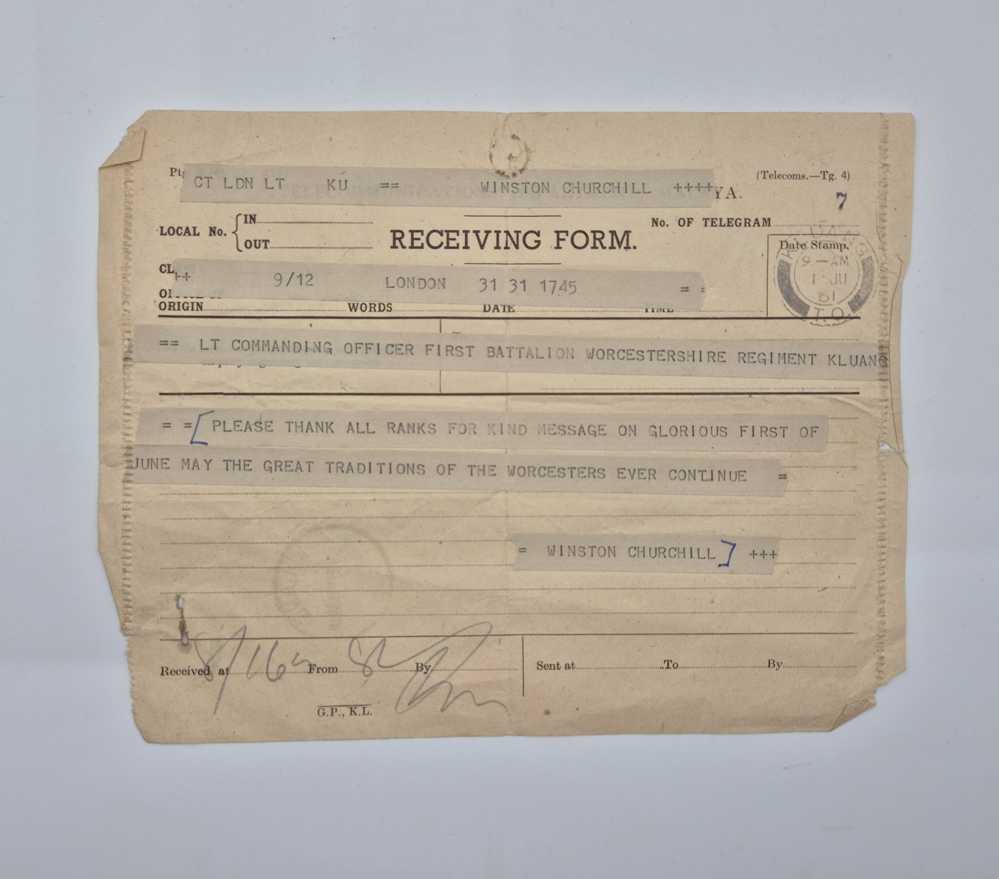 CT LDN LT KU == WINSTON CHURCHILL ++++
YA.
(Telecoms.—Tg. 4)
7
LOCAL No. { IN
OUT
RECEIVING FORM.
No. OF TELEGRAM
Date Stamp.
KLUANG
9—AM
1 JU
51
T.O.
++ 9/12 LONDON 31 31 1745 = =
ORIGIN WORDS DATE TIME
== LT COMMANDING OFFICER FIRST BATTALION WORCESTERSHIRE REGIMENT KLUANG
= =[PLEASE THANK ALL RANKS FOR KIND MESSAGE ON GLORIOUS FIRST OF
JUNE MAY THE GREAT TRADITIONS OF THE WORCESTERS EVER CONTINUE =
= WINSTON CHURCHILL] +++
Received at From By
Sent at To By
G.P., K.L.